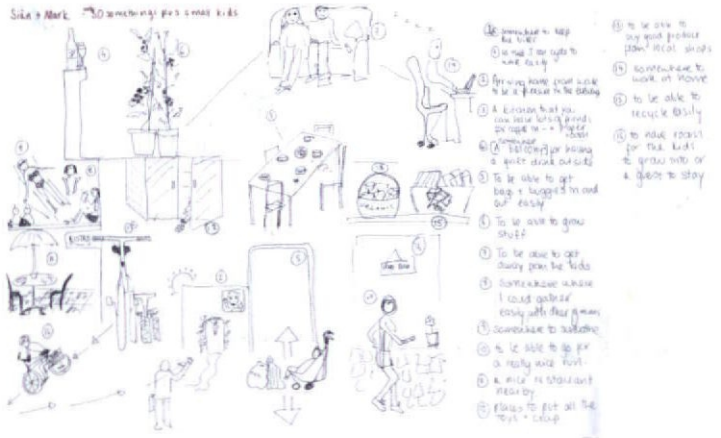 Siân + Mark - 30 somethings plus small kids
BISTRO
① somewhere to keep
the bikes
so that I can cycle to
work easily
② Arriving home from work
to be a pleasure in the evening
③ A kitchen that you
can have lots of friends
for
somewhere
④ A balcony for having
a quiet drink outside
⑤ To be able to get
bags + buggies in and
out easily
⑥ To be able to grow
stuff
⑦ To be able to get
away from the kids
⑧ Somewhere where
I could gather
easily with other mums
⑨ Somewhere to sunbathe
⑩ to be able to go for
a really nice run
⑪ a nice restaurant
nearby
⑫ places to put all the
toys + crap
⑬ to be able to
buy good produce
from local shops
⑭ somewhere to
work at home
⑮ to be able to
recycle easily
⑯ to have rooms
for the kids
to grow into or
a guest to stay